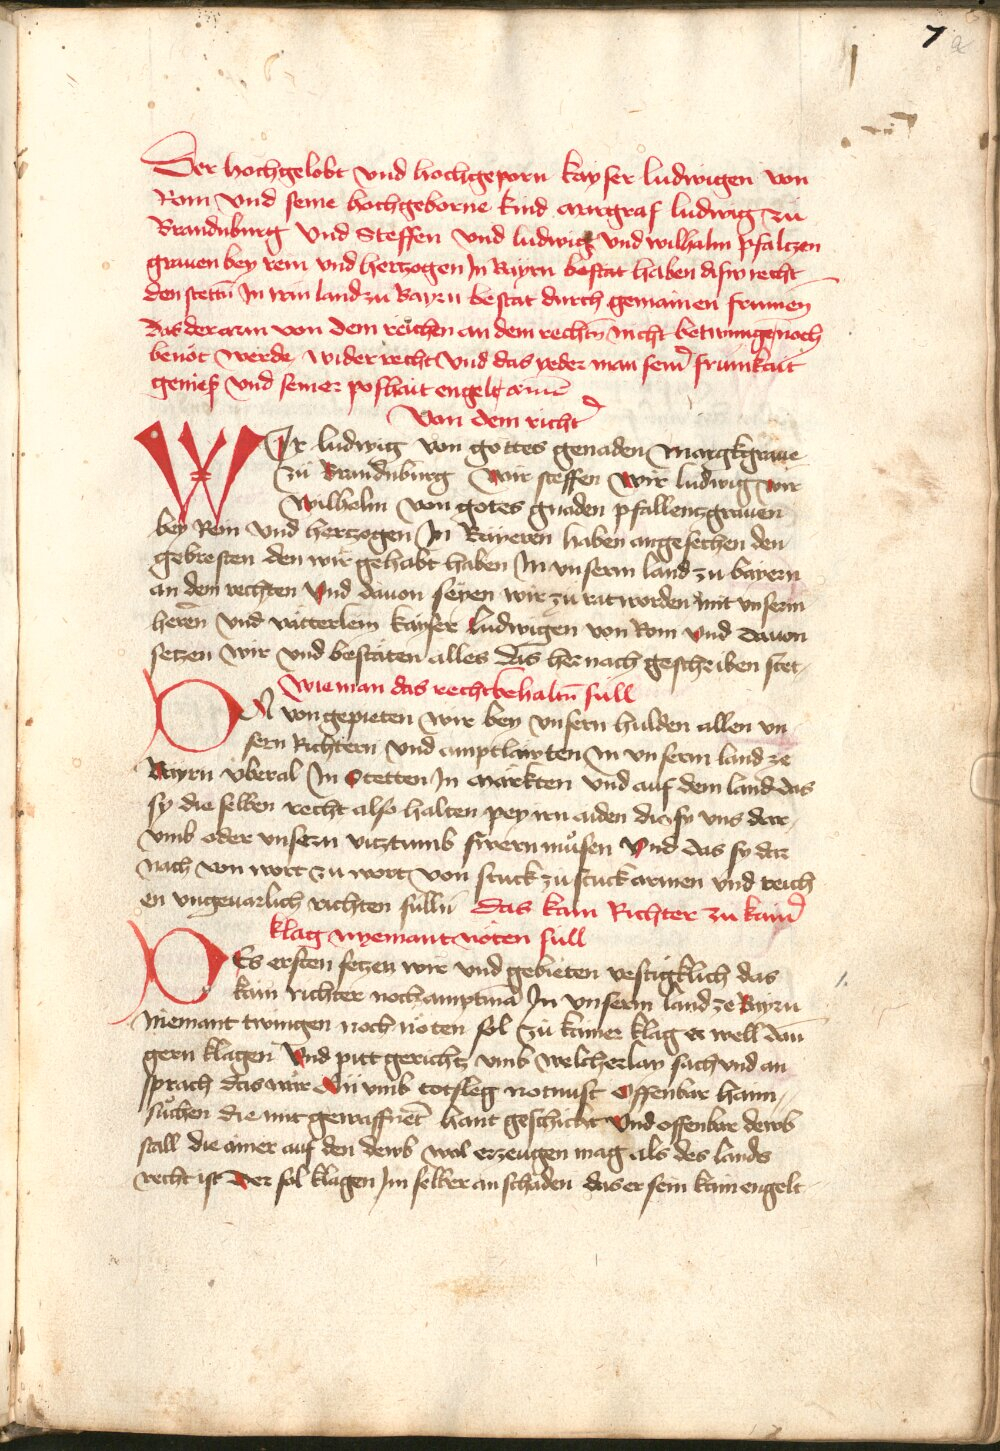 7
Der hochgelobt vnd hochgeporn kayser ludwigen von
Rom vnd seine hochgeborne kind margraf ludwig zu
Brandnburg vnd Steffen vnd ludwig vnd wilhalm pfaltzen
grauen bey rein vnd hertzogen In Bayrn bestat haben diss recht
den steten In irm land zu Bayrn bestat durch gemainen frumen
das der arm von dem reichen an dem rechtn nicht betwungen noch
benöt werde wider recht vnd das yeder man seinr frumkait
genieß vnd seiner poshait engelt amen
Von dem richtr
WIr ludwig von gottes genaden Margkgraue
zu Brandnburg Wir steffen Wir ludwig wir
Wilhelm von gotes gnaden pfallentzgrauen
bey Rein vnd hertzogen In Bayeren haben angesechen den
gebresten den wir gehabt haben In vnserm land zu bayern
an dem rechten Vnd dauon seyen wir zu rat worden mit vnserm
heren vnd vätterlein kayser Ludwigen von Rom vnd dauon
setzen wir vnd bestäten alles das hernach geschriben stet
Wie man das recht behaltn sull
DA von gepieten wir bey vnsern hulden allen vn
sern Richtern vnd amptläwten In vnserm land ze
Bayrn vberal In Stetten In märkten vnd auf dem land das
sy die selben recht also halten pey irn aiden die sy vns dar
vmb oder vnsern viztumb swern müsen Vnd das sy dar
nach von wort zu wort von stuck zu stuck armen vnd reich
en vngeuarlich richten sülln das kain Richter zu kainr
klag nyemant nöten sull
DEs ersten setzen wir vnd gebieten vestigklich das
kain richter noch amptman In vnserm land ze Bayrn
Niemant twingen noch nöten sol zu kainer klag er well dan
gern klagen Vnd pitt gerichtz vmb welcherlay sach vnd an
sprach das wär An vmb totsleg notnuft Offenbar haim
suchen die mit gewaffneter hant geschicht Vnd offenbar dewb
stall die ainer auf den dewb wol erzeugen mag als des lands
recht ist Der sol klagen Im selber an schaden das er sein kain engelt